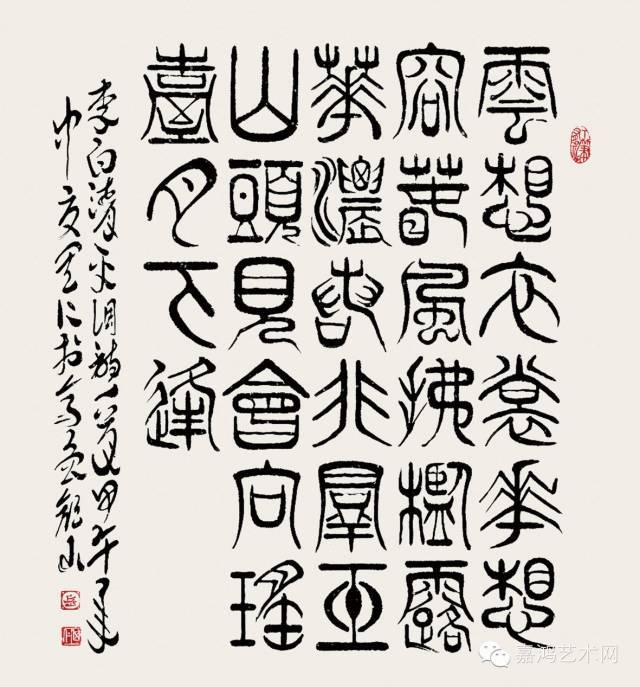 雲想衣裳花想
容春風拂檻露
華濃若非羣玉
山頭見會向瑤
臺月下逢
李白清平调詩一首甲午年
中夏
嘉鸿艺术网